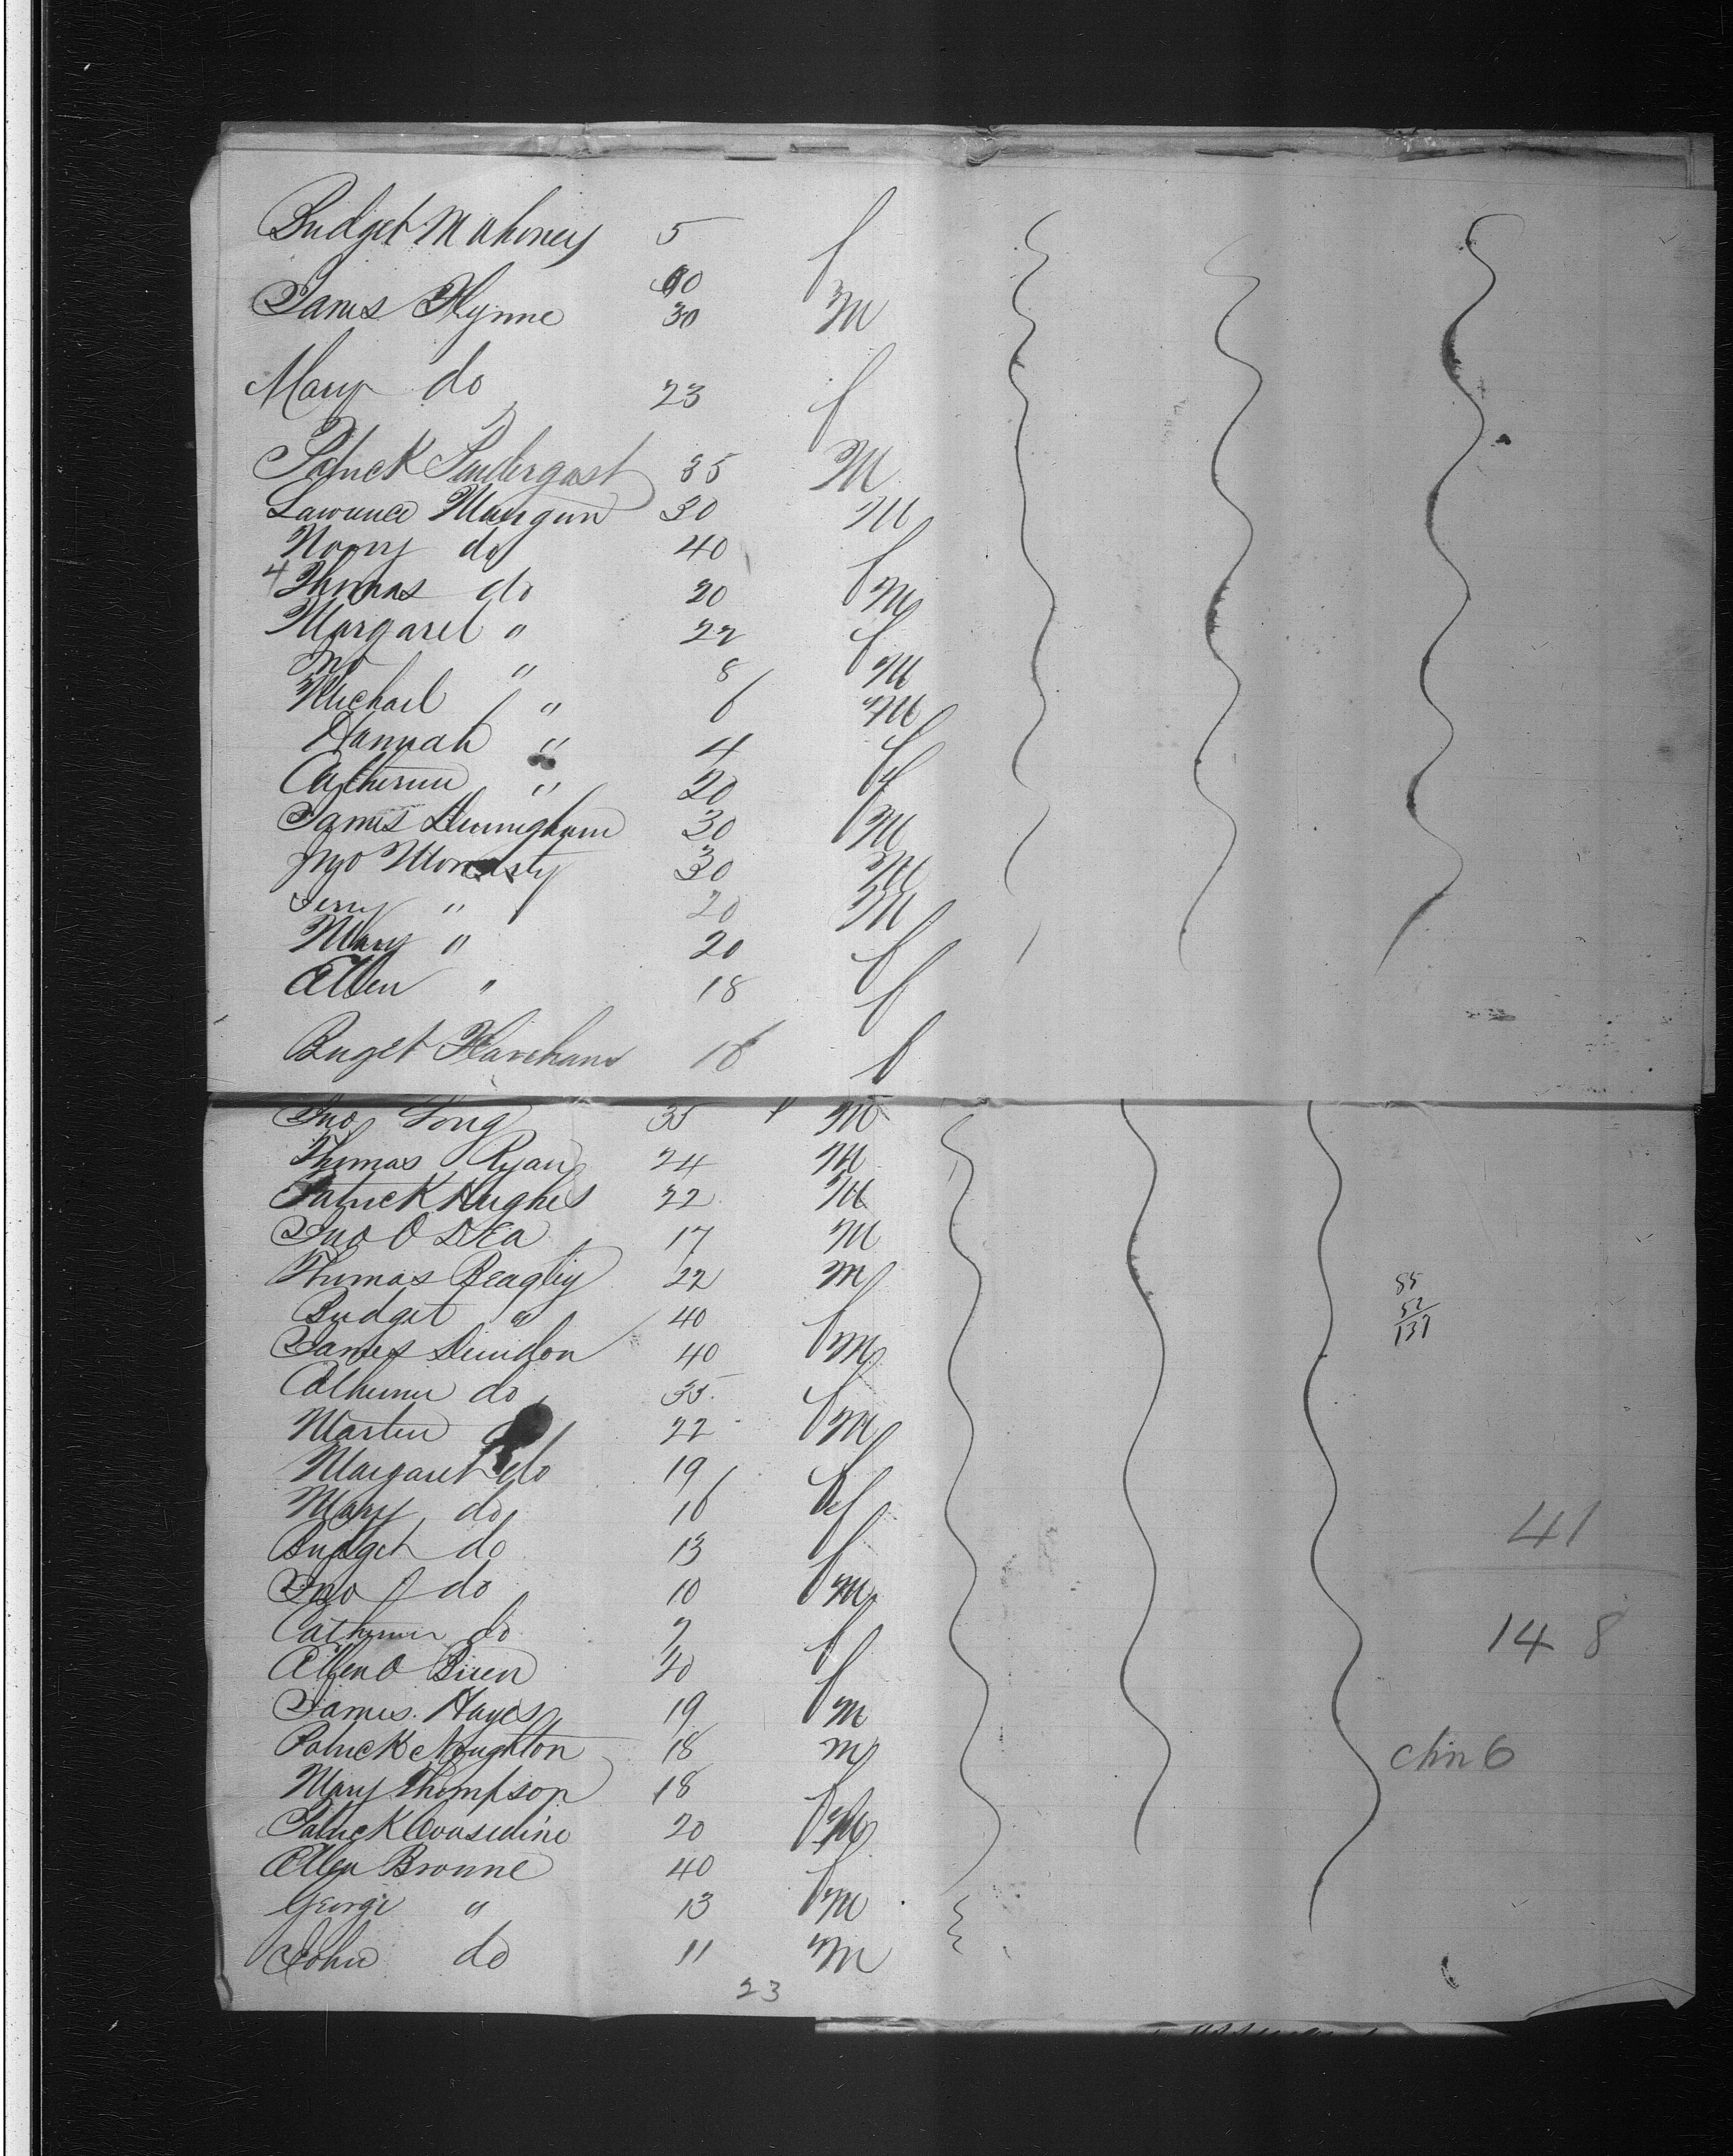 Bridget Mahoney 5 f
James Flynne 30 M
Mary do 23 f
Patrick Pendergast 35 M
Lawrence Mangun 30 M
Norry do 40 f
4 Thomas do 20 M
Margaret " 22 f
Jno " 8 M
Michael " 6 M
Hannah " 4 f
Catherine " 20 f
James 30 M
Jno 30 M
Jerry " 20 M
Mary " 20 f
Ellen " 18 f
Buget 16 f
Jno Long 35 M
Thomas Ryan 24 M
Patrick Hughes 22 M
Jno O DEa 17 M
Thomas Beagley 22 M
Bridget " 40 f
James Dundon 40 M
Catherine do 35 f
Martin 22 M
Margaret do 19 f
Mary do 16 f
Bridget do 13 f
Jno do 10 M
Catherine do 7 f
Ellen O Brien 20 f
James Hayes 19 M
Patrick Noughton 18 M
Mary Thompson 18 f
Patrick Considine 20 M
Ellen Bronne 40 f
George " 13 M
John do 11 M
23
85
52
137
41
14 8
chn 6